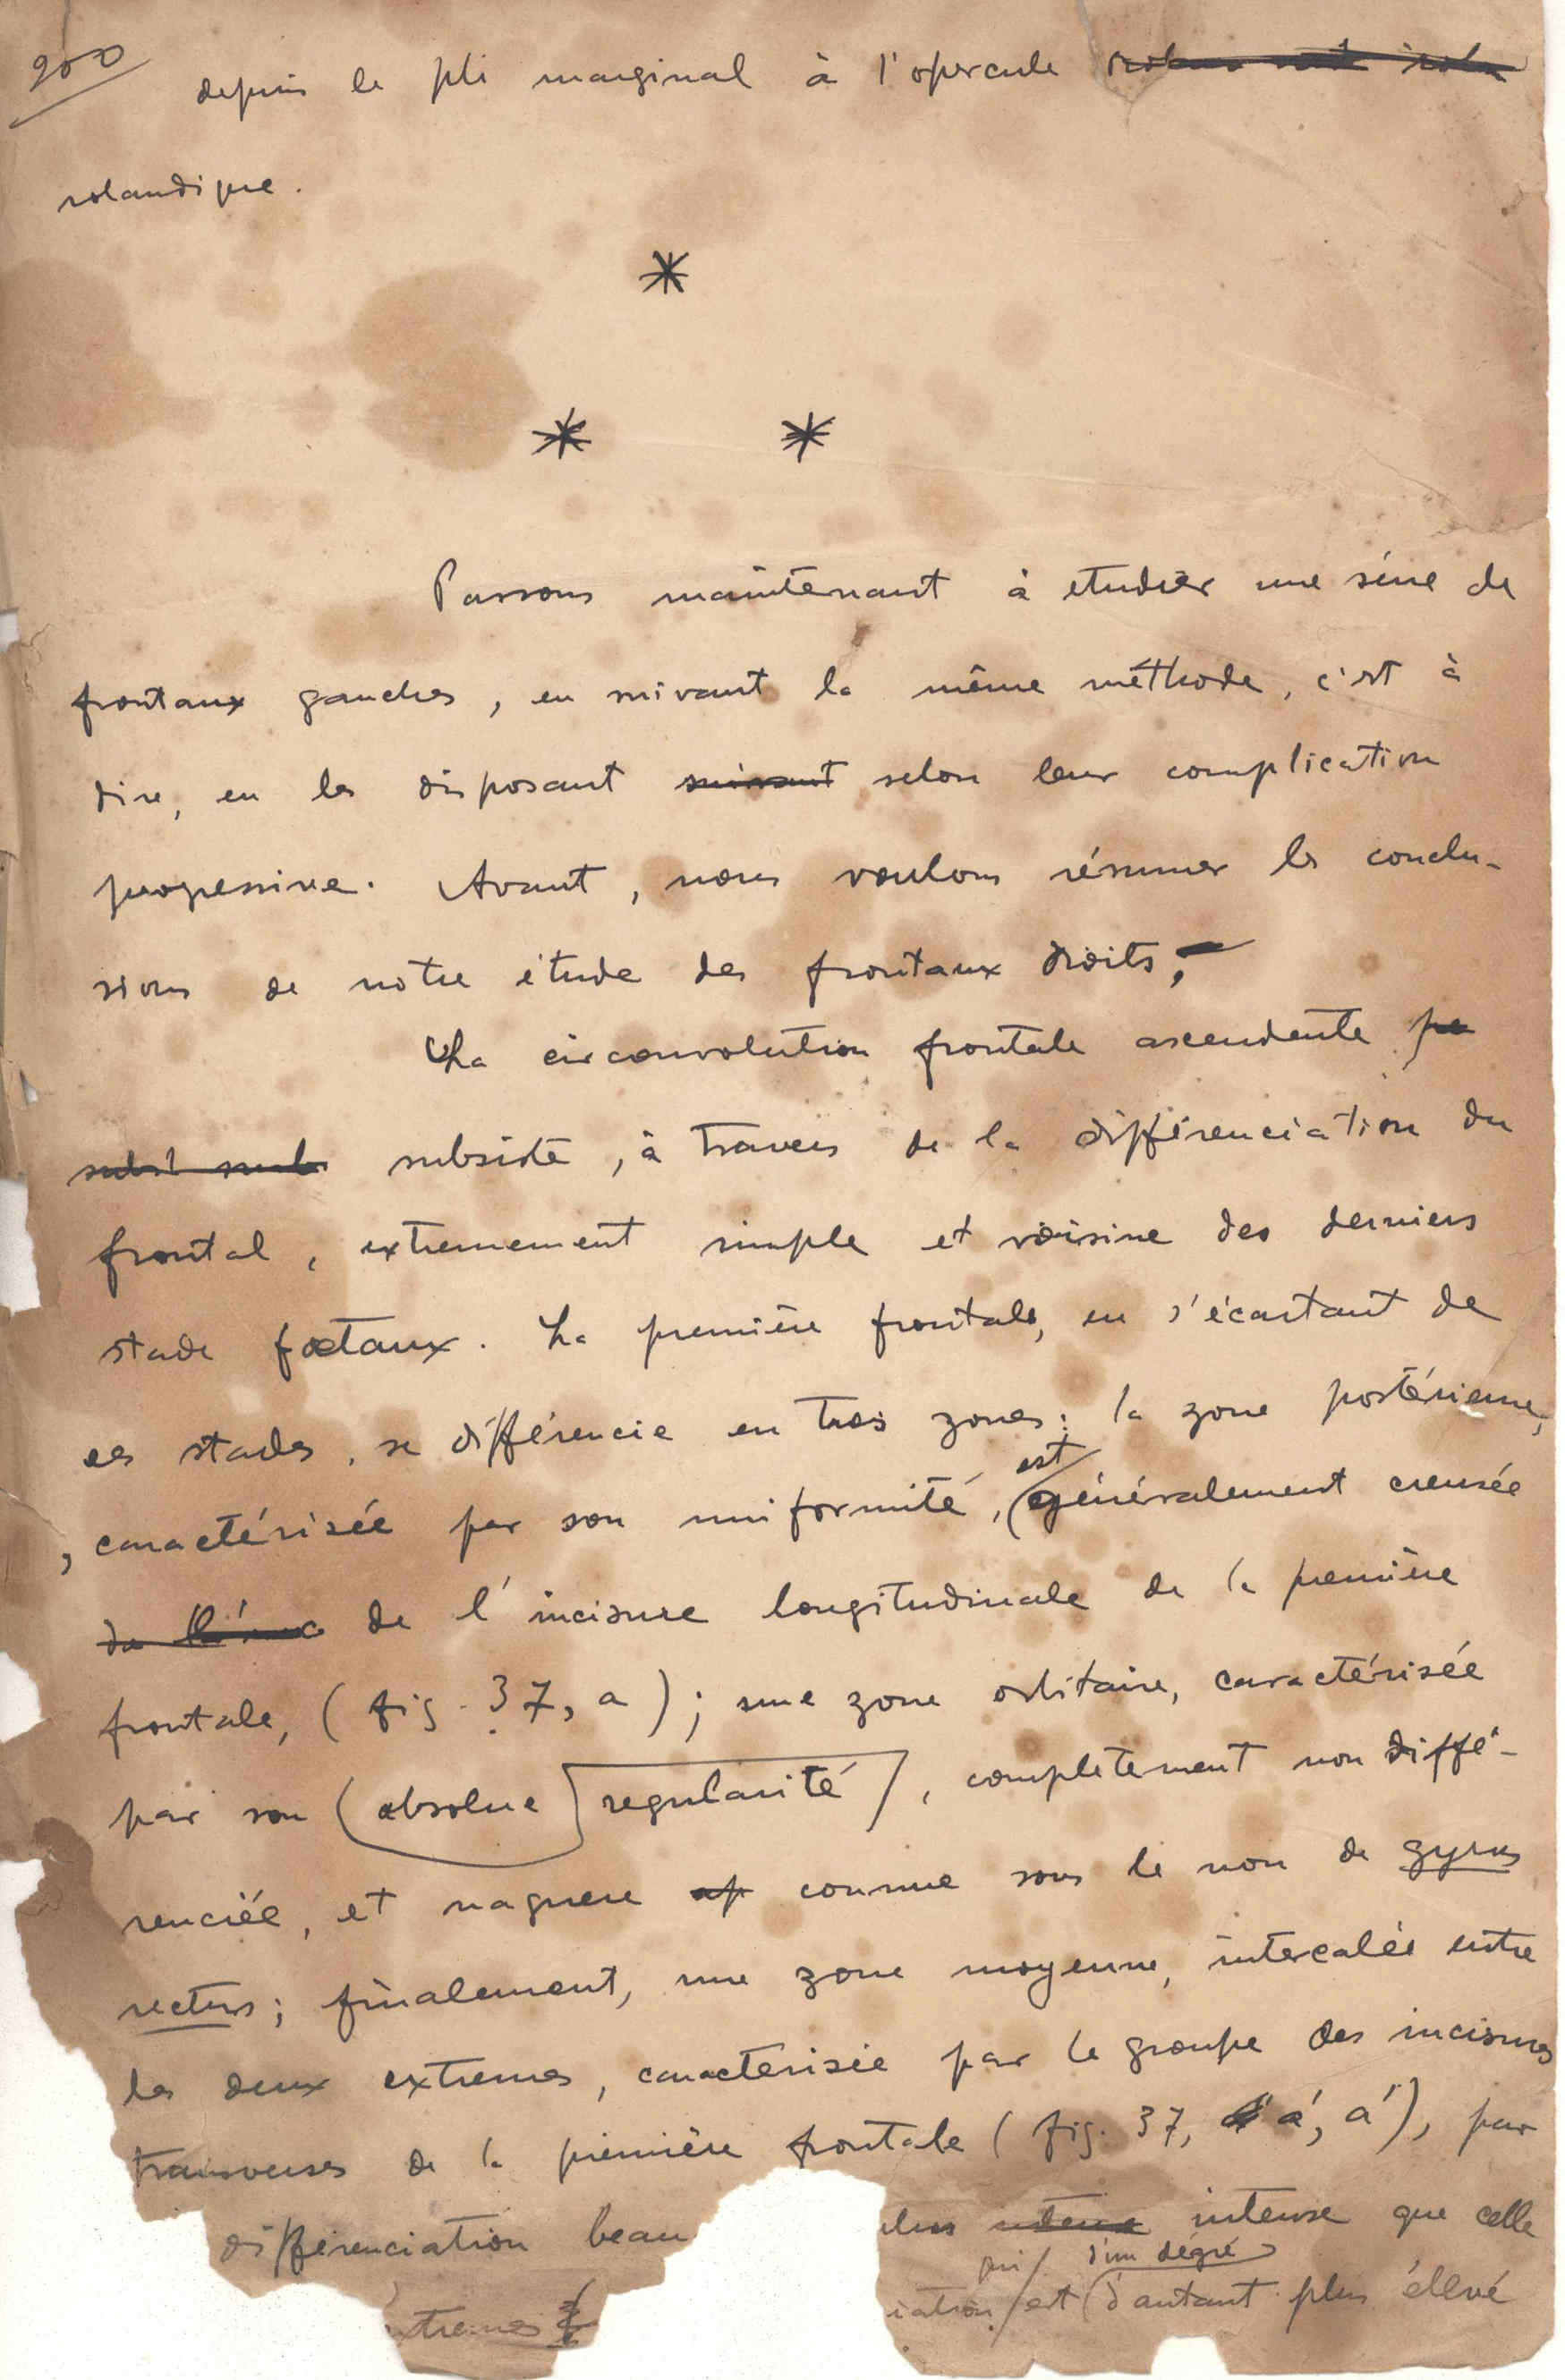 200
depuis le pli marginal à l'opercule
rolandique.
Passons maintenant à etudier une série de
frontaux gauches, en suivant la même méthode, c'est à
dire, en les disposant suivant selon leur complication
progressive. Avant, nous voulons résumer les conclu-
sions de notre étude des frontaux droits,
La circonvolution frontale ascendente
subsiste, à travers de la différenciation du
frontal, extremement simple et voisine des derniers
stade fœtaux. La première frontale, en s'écartant de
ces stades, se différencie en trois zones: la zone postérieure,
, caractérisée par son uniformité, est généralement creusée
de l'incisure longitudinale de la première
frontale, (fig. 37, a); une zone orbitaire, caractérisée
par son absolue regularité, completement non diffé-
renciée, et naguere connue sous le nom de gyrus
rectus; finalement, une zone moyenne, intercalée entre
les deux extremes, caracterisée par le groupe des incisures
transverses de la première frontale (fig. 37, a', a''), par
différenciation beau plus intense que celle
qui d'un degré
xtremes iation est d'autant plus élevé